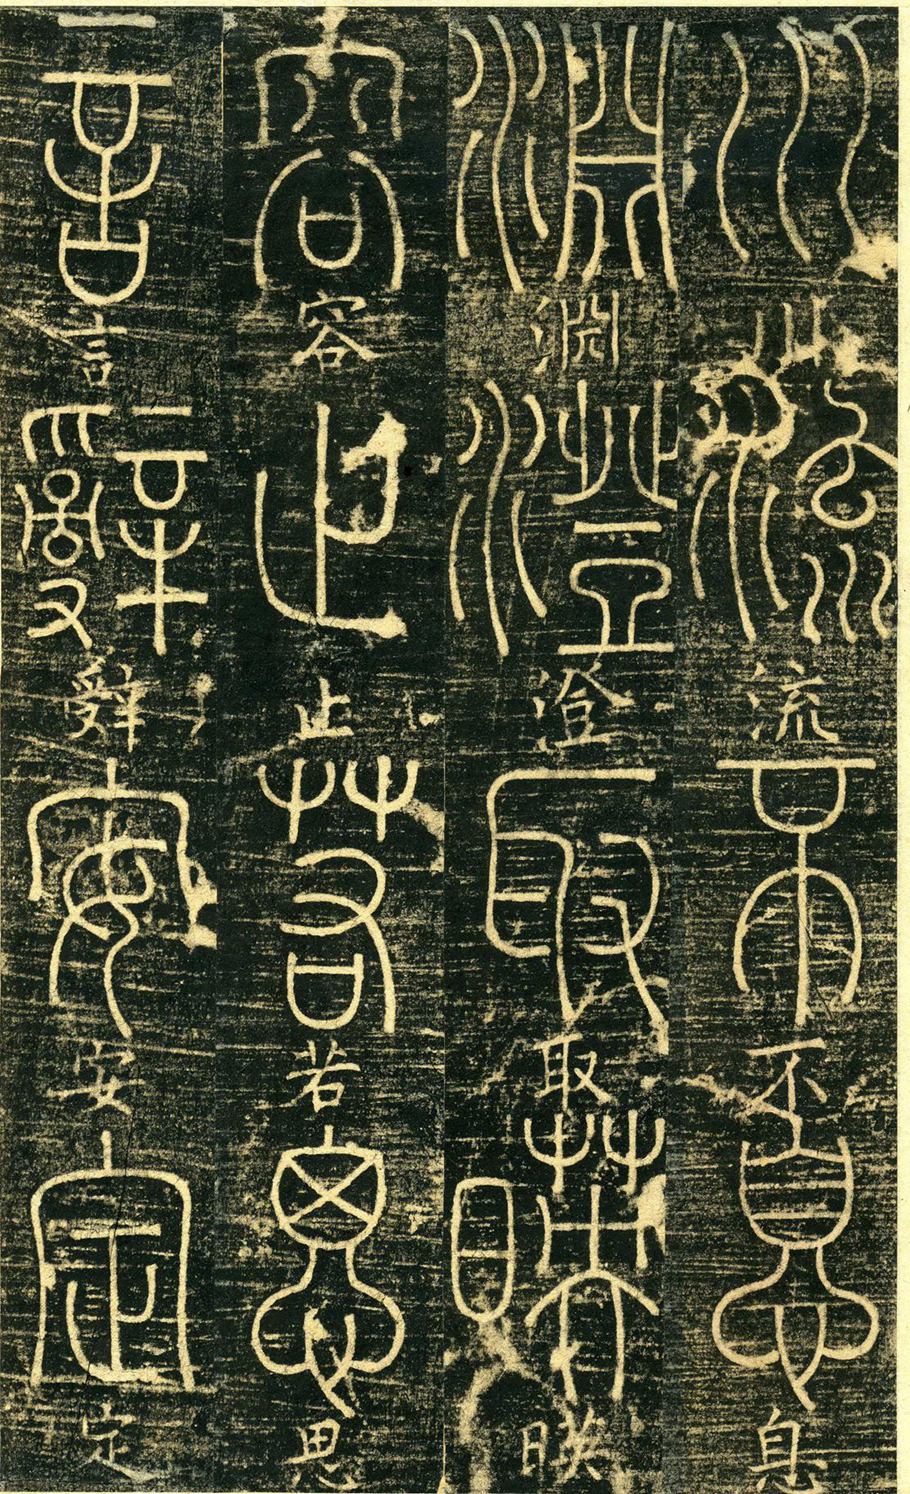 川流不息
淵澄取暎
容止若思
言辭安定